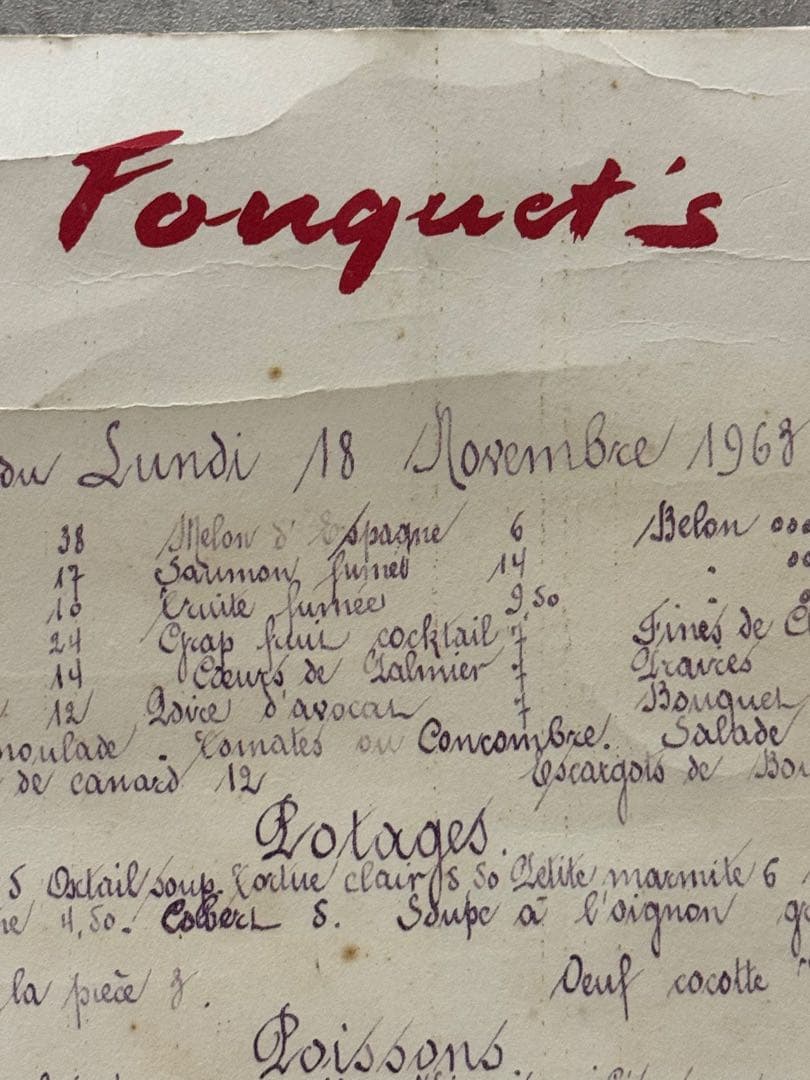 Fouquet's
du Lundi 18 Novembre 1963
38 Melon d'Espagne 6 Belon ooo
17 Saumon fumé 14 " oo
10 Truite fumée 9,50 " o
24 Grap fruit cocktail 7 Fines de C
14 Cœurs de Palmier 7 Praires
12 Poire d'avocat 7 Bouquet
moulade . Tomates ou Concombre. Salade
de canard 12 Escargots de Bou
Potages.
5 Oxtail soup. Tortue clair 5 50 Petite marmite 6
ne 4,50. Colbert 5. Soupe à l'oignon g
la pièce 3. Oeuf cocotte
Poissons.